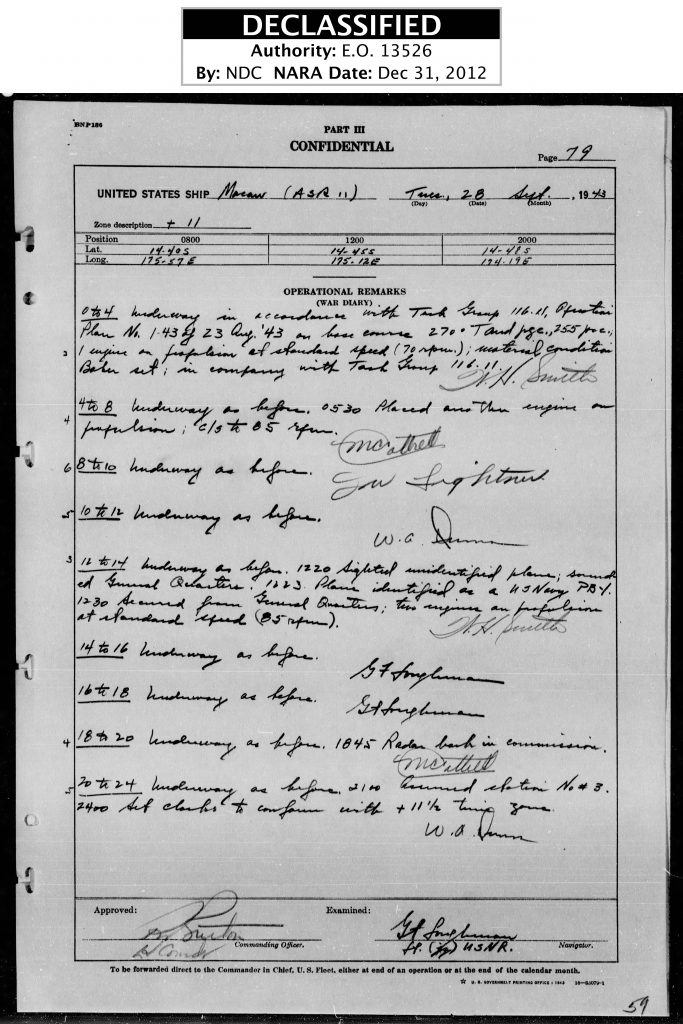 DECLASSIFIED
Authority: E.O. 13526
By: NDC NARA Date: Dec 31, 2012
BNP186
PART III
CONFIDENTIAL
Page 79
UNITED STATES SHIP Macaw (ASR 11) Tues, 28 Sept., 1943
(Day) (Date) (Month)
Zone description + 11
Position 0800 1200 2000
Lat. 14-40S 14-45S 14-48S
Long. 175-57E 175-12E 174-19E
OPERATIONAL REMARKS
(WAR DIARY)
0 to 4 Underway in accordance with Task Group 116.11, Operation
Plan No. 1-43 of 23 Aug. '43 on base course 270° T and pgc., 255 psc.,
3 1 engine on propulsion at standard speed (70 rpm.); material condition
Baker set; in company with Task Group 116.11.
W.H. Smith
4 4 to 8 Underway as before. 0530 Placed another engine on
propulsion; c/s to 85 rpm.
6 8 to 10 Underway as before.
Lightner
5 10 to 12 Underway as before.
W.A. Dunn
3 12 to 14 Underway as before. 1220 Sighted unidentified plane; sound-
ed General Quarters. 1223 Plane identified as a US Navy PBY.
1230 Secured from General Quarters; two engines on propulsion
at standard speed (85 rpm).
W.H. Smith
14 to 16 Underway as before.
G F Loughman
16 to 18 Underway as before.
G F Loughman
4 18 to 20 Underway as before. 1845 Radar back in commission.
5 20 to 24 Underway as before. 2100 Assumed station No # 3.
2400 Set clocks to conform with + 11 1/2 time zone.
W.A. Dunn
Approved: Examined:
P. W. Burton G F Loughman
Lt Comdr Commanding Officer. Lt. (jg) USNR. Navigator.
To be forwarded direct to the Commander in Chief, U. S. Fleet, either at end of an operation or at the end of the calendar month.
☆ U. S. GOVERNMENT PRINTING OFFICE : 1943
59